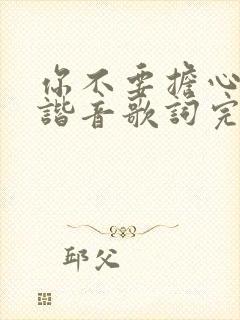 你不要擔心
諧音歌詞完
邱父